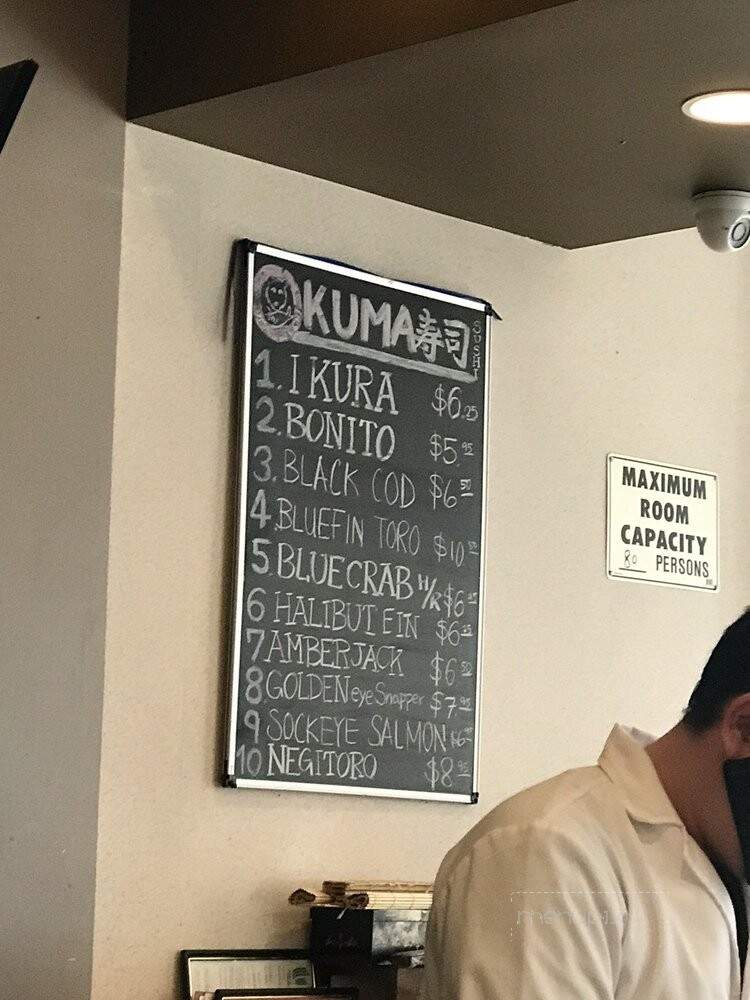 KUMA寿司 SUSHI
1. IKURA $6.25
2. BONITO $5.95
3. BLACK COD $6.50
4. BLUEFIN TORO $10.50
5 BLUECRAB H/R $6
6 HALIBUT EIN $6.25
7 AMBERJACK $6.50
8 GOLDEN eye Snapper $7.95
9 SOCKEYE SALMON $6
10 NEGITORO $8.95
MAXIMUM
ROOM
CAPACITY
80 PERSONS